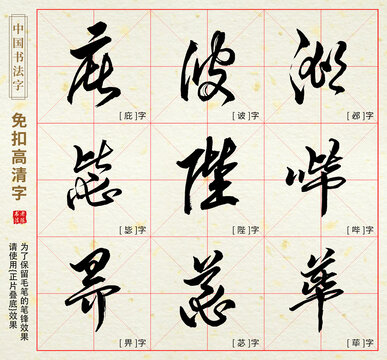 中国书法字
免扣高清字
为了保留毛笔的笔锋效果
请使用[正片叠底]效果
庇 诐 邲
[ 庇 ]字 [ 诐 ]字 [ 邲 ]字
毖 陛 哔
[ 毖 ]字 [ 陛 ]字 [ 哔 ]字
畀 苾 荜
[ 畀 ]字 [ 苾 ]字 [ 荜 ]字